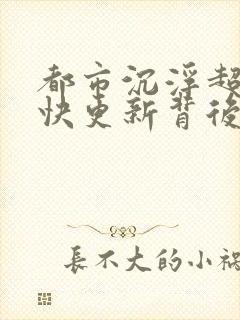 都市沉浮超
快更新背後
長不大的小禍